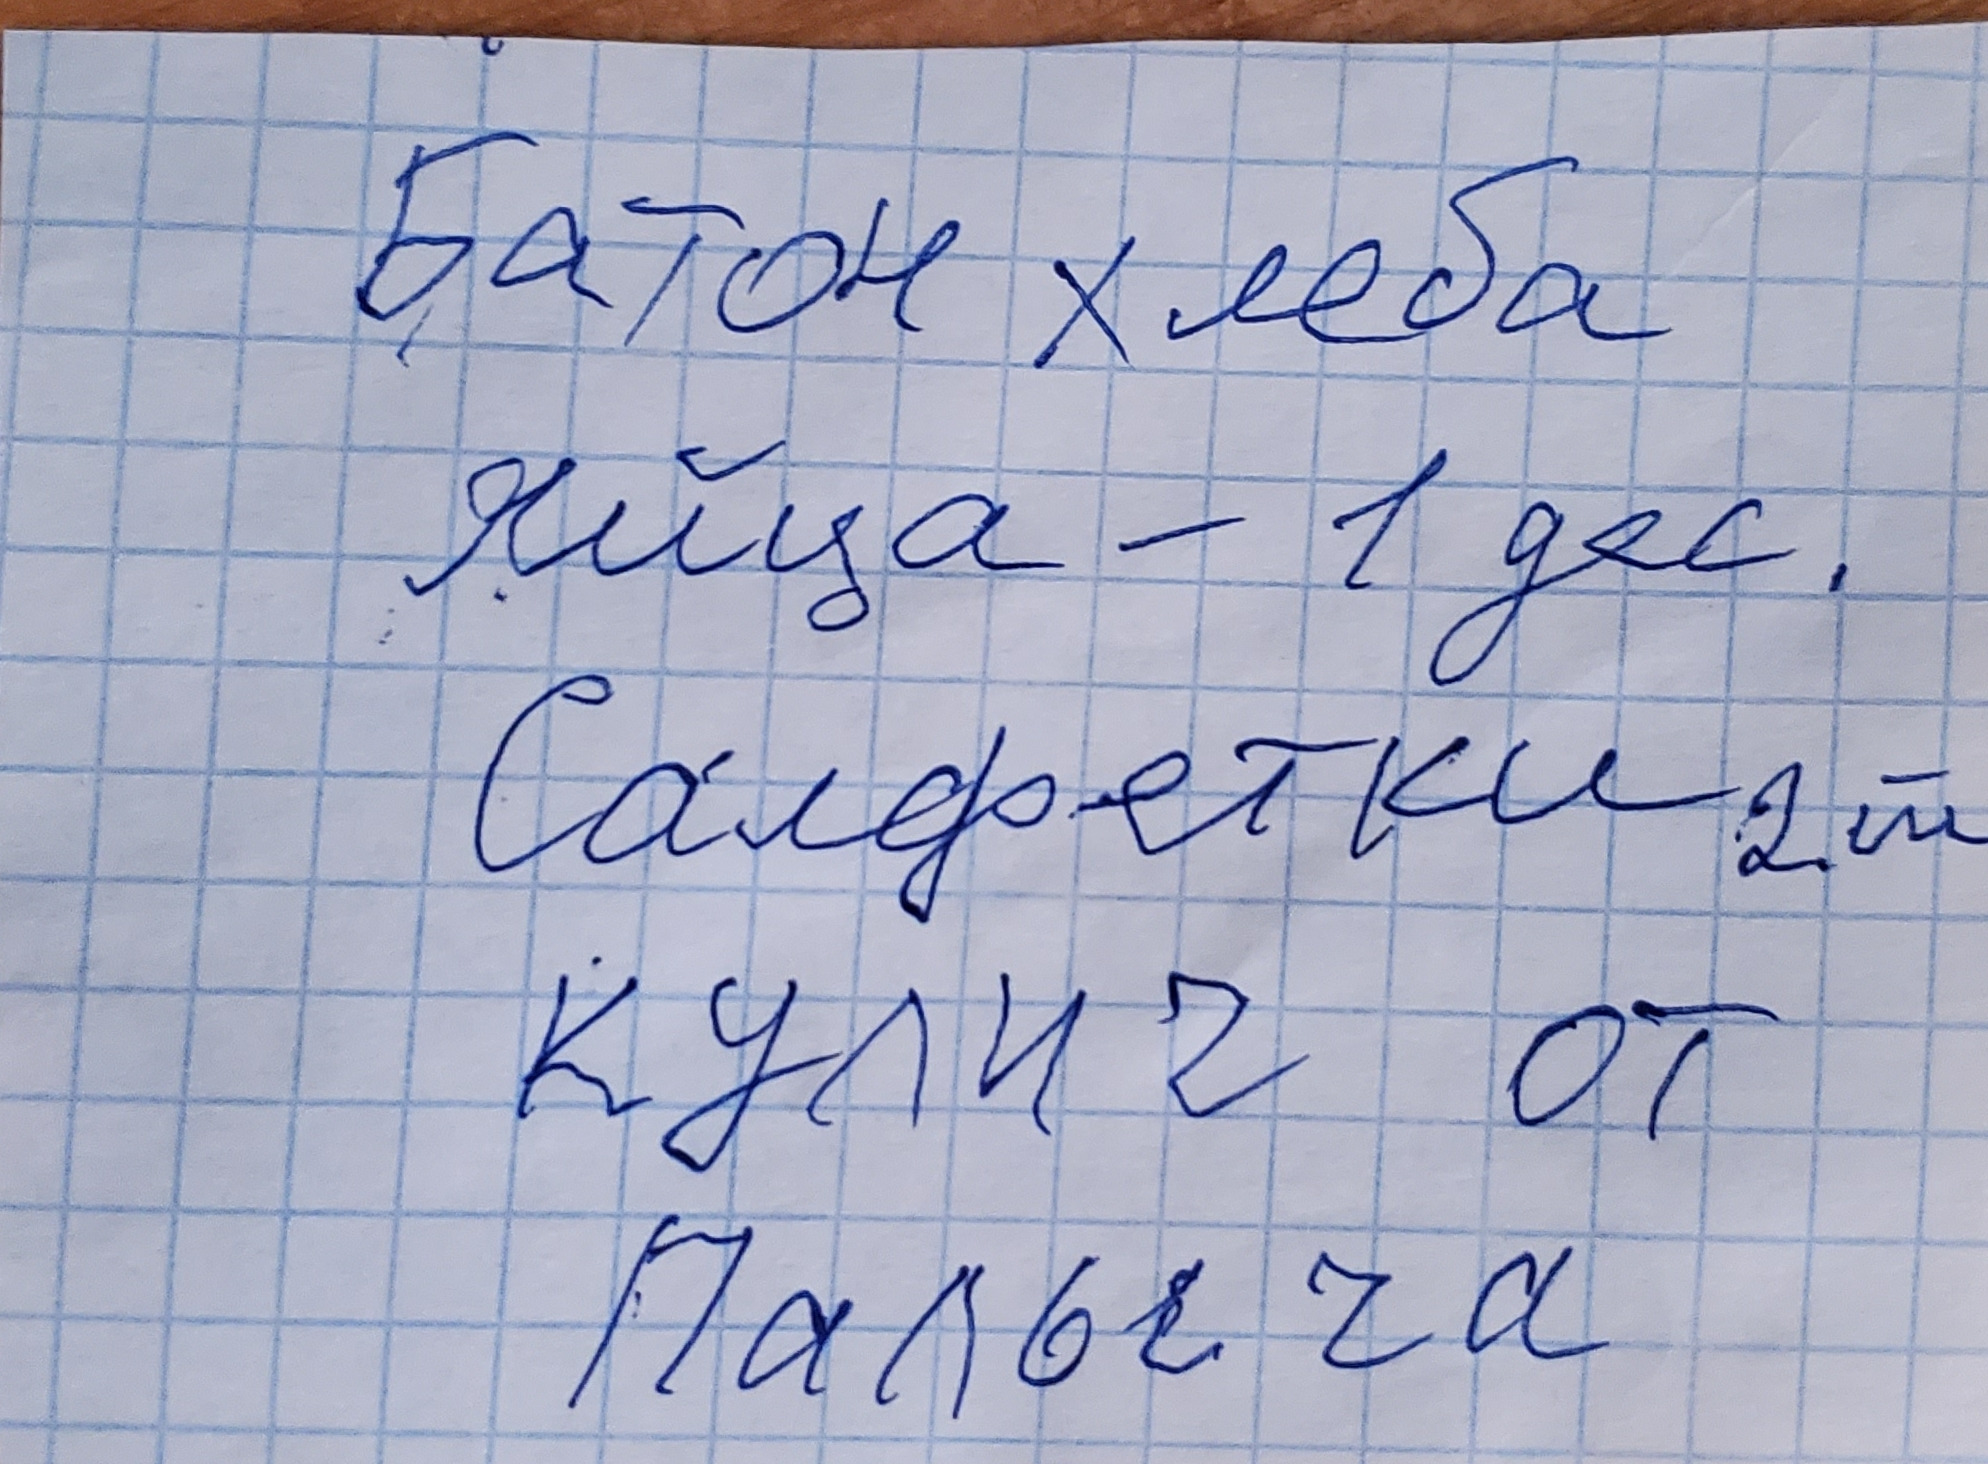 Батон хлеба
Яйца - 1 дес.
Салфетки 2
кулич от
Палыча